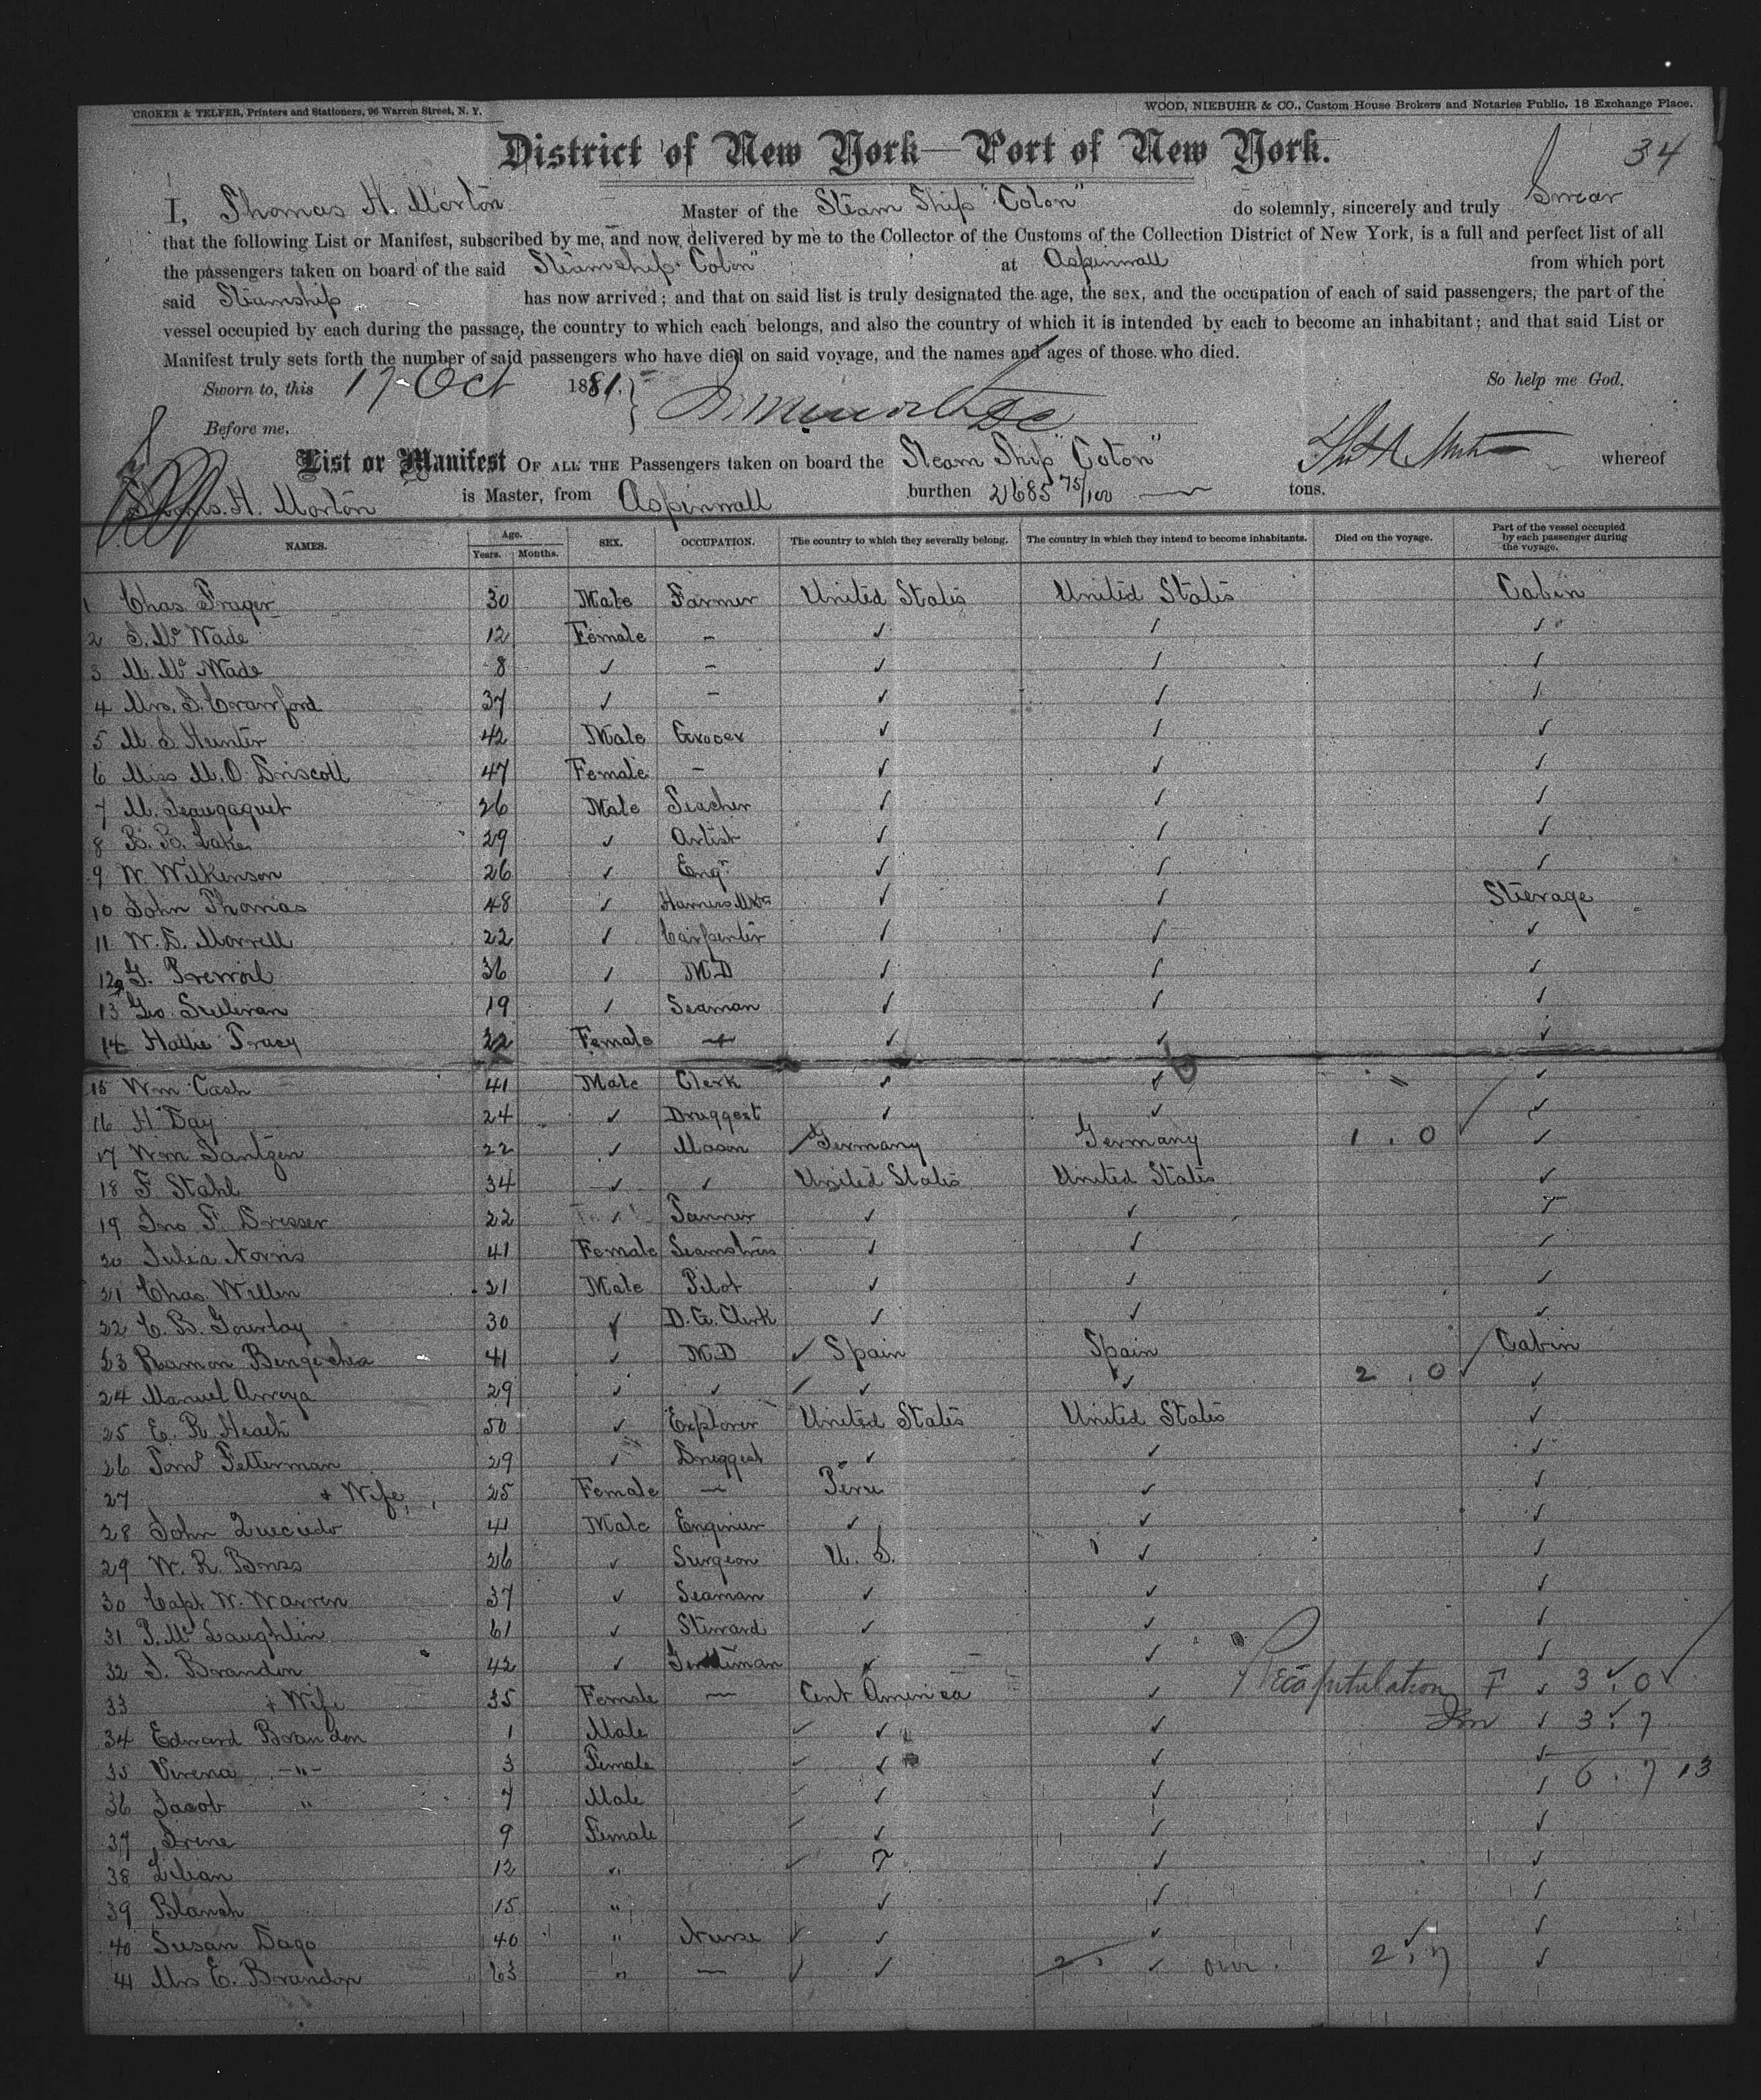 CROKER & TELFER, Printers and Stationers, 96 Warren Street, N. Y.
WOOD, NIEBUHR & CO., Custom House Brokers and Notaries Public, 18 Exchange Place.
District of New York—Port of New York.
34
I, Thomas H. Morton Master of the Steam Ship "Colon" do solemnly, sincerely and truly Swear
that the following List or Manifest, subscribed by me, and now delivered by me to the Collector of the Customs of the Collection District of New York, is a full and perfect list of all
the passengers taken on board of the said Steamship "Colon" at Aspinwall from which port
said Steamship has now arrived; and that on said list is truly designated the age, the sex, and the occupation of each of said passengers, the part of the
vessel occupied by each during the passage, the country to which each belongs, and also the country of which it is intended by each to become an inhabitant; and that said List or
Manifest truly sets forth the number of said passengers who have died on said voyage, and the names and ages of those who died.
Sworn to, this 17 Oct 1881. So help me God,
Before me,
List or Manifest OF ALL THE Passengers taken on board the Steam Ship "Colon" whereof
Thomas. H. Morton is Master, from Aspinwall burthen 2685 75/100 tons.
NAMES. Age. Years. Months. SEX. OCCUPATION. The country to which they severally belong. The country in which they intend to become inhabitants. Died on the voyage. Part of the vessel occupied by each passenger during the voyage.
1 Chas. Frager 30 Male Farmer United States United States Cabin
2 S. Mc Wade 12 Female – ✓ ✓ ✓
3 M. Mc Wade 8 ✓ – ✓ ✓ ✓
4 Mrs. S. Crawford 37 ✓ – ✓ ✓ ✓
5 M. S. Hunter 42 Male Grocer ✓ ✓ ✓
6 Miss M. O. Driscoll 47 Female – ✓ ✓ ✓
7 M. 26 Male Teacher ✓ ✓ ✓
8 B. B. Lake 29 ✓ Artist ✓ ✓ ✓
9 W. Wilkinson 26 ✓ Engr ✓ ✓ ✓
10 John Thomas 48 ✓ Harness Mkr ✓ ✓ Steerage
11 W. D. Morrell 22 ✓ Carpenter ✓ ✓ ✓
12 36 ✓ M.D ✓ ✓ ✓
13 Geo. Sullivan 19 ✓ Seaman ✓ ✓ ✓
14 Hattie Tracy 22 Female – ✓ ✓ ✓
15 Wm Cash 41 Male Clerk ✓ ✓ ✓
16 H Day 24 ✓ Druggest ✓ ✓ ✓
17 Wm Jantzen 22 ✓ Mason Germany Germany 1 . 0 ✓
18 F. Stahl 34 ✓ ✓ United States United States ✓
19 Jno F. Dresser 22 ✓ Tanner ✓ ✓
20 Julia Norris 41 Female Seamstress ✓ ✓ ✓
21 Chas. Willen 21 Male Pilot ✓ ✓ ✓
22 C. B. Gourlay 30 ✓ D. G. Clerk ✓ ✓ ✓
23 Ramon Bengochea 41 ✓ M.D ✓ Spain Spain Cabin
24 Manuel Arroya 29 ✓ ✓ ✓ ✓ ✓ 2 . 0 ✓
25 E. R. Heath 50 ✓ Explorer United States United States ✓
26 Fetterman 29 ✓ Druggest ✓ ✓ ✓
27 + Wife 25 Female – Peru ✓ ✓
28 John 41 Male Enginier ✓ ✓ ✓
29 W. R. 26 ✓ Surgeon U. S. ✓ ✓
30 Capt W. Warren 37 ✓ Seaman ✓ ✓ ✓
31 P. Mc Laughlin 61 ✓ Steward ✓ ✓ ✓
32 J. Brandon 42 ✓ Gentleman ✓ ✓ ✓
33 + Wife 35 Female – Cent America ✓ Recapitulation F ✓ 3 . 0
34 Edward Brandon 1 Male ✓ ✓ ✓ ✓ 3 . 7
35 Verena –"– 3 Female ✓ ✓ ✓ ✓
36 Jacob " 7 Male ✓ ✓ ✓ ✓ 6 . 7 13
37 Irene 9 Female ✓ ✓ ✓ ✓
38 Lilian 12 " ✓ ✓ ✓
39 Blanch 15 " ✓ ✓ ✓
40 Susan Dago 40 " Nurse ✓ ✓ ✓ ✓
41 Mrs E. Brandon 63 " – ✓ ✓ ✓ over 2 . 7 ✓